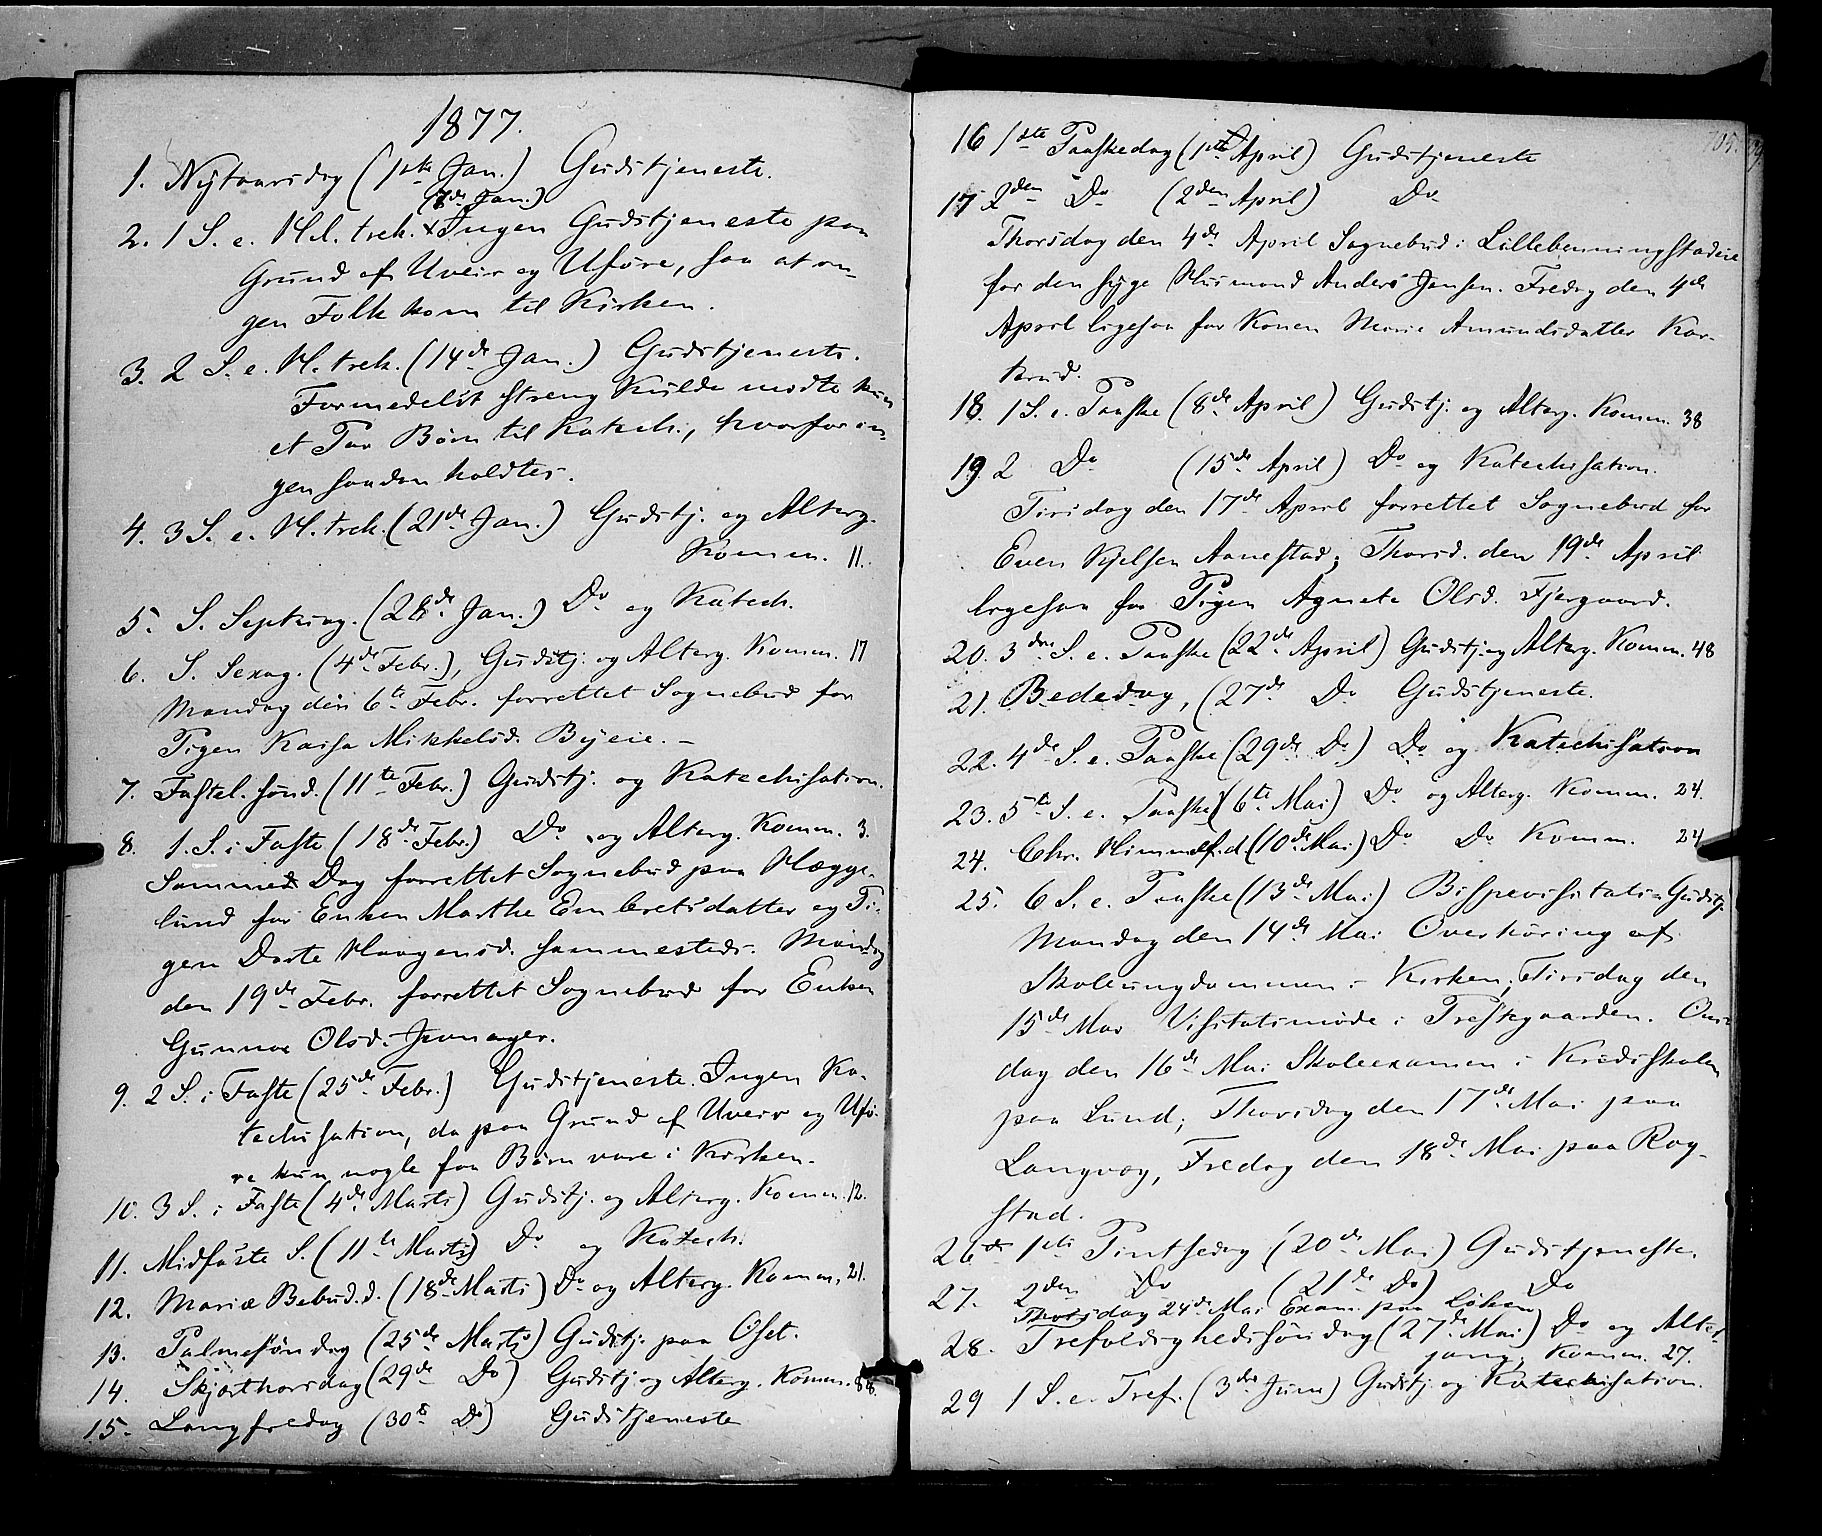 1877.
1. Nytaarsdag (1ste Jan.) Gudstjeneste.
(7de Jan.)
2. 1 S. e. H.l. trek. x Ingen Gudstjeneste paa
Grund af Uveir og Uføre, saa at in-
gen Folk kom til Kirken.
3. 2 S. e. H. trek. (14de Jan.) Gudstjeneste.
Formedelst streng Kulde mødte kun
et Par Børn til Katech., hvorfor in-
gen saadan holdtes.
4. 3 S. e. H. trek. (21de Jan.) Gudstj. og Alterg.
Komm. 11.
5. S. Septuag. (28de Jan.) Do og Katech.
6. S. Sexag. (4de Febr.), Gudstj. og Alterg. Komm. 17
Mandag den 6te Febr. forrettet Sognebud for
Pigen Kaisa Mikkelsd. Byeie. -
7. Fastel. sønd. (11te Febr.) Gudstj. og Katechisation.
8. 1. S. i Faste (18de Febr.) Do og Alterg. Komm. 3.
Samme Dag forrettet Sognebud paa Hægge-
lund for Enken Marthe Embretsdatter og Pi-
gen Dorte Haagensd. sammesteds. Mandag
den 19de Febr. forrettet Sognebud for Enken
Gunnor Olsd.
9. 2 S. i Faste (25de Febr.) Gudstjeneste. Ingen Ka-
techisation, da paa Grund af Uveir og Ufø-
re kun nogle faa Børn vare i Kirken.
10. 3 S. i Faste (4de Marts) Gudstj. og Alterg. Komm. 12.
11. Midfaste S. (11te Marts) Do og Katech.
12. Mariæ Bebud.d. (18de Marts) Do og Alterg. Komm. 21.
13. Palmesøndag (25de Marts) Gudstj. paa Oset.
14. Skjærthorsdag (29de Do) Gudstj. og Alterg. Komm. 88.
15. Langfredag (30te Do) Gudstjeneste
105.
16 1ste Paaskedag (1ste April) Gudstjeneste
17 2den Do (2den April) Do
Thorsdag den 4de April Sognebud i Lillebenningstadeie
for den syge Husmand Anders Jensen. Fredag den 4de
April ligesaa for Konen Marie Amundsdatter Kar-
krud.
18. 1 S. e. Paaske (8de April) Gudstj. og Alterg. Komm. 38
19 2 Do (15de April) Do og Katechisation.
Tirsdag den 17de April forrettet Sognebud for
Even Kjelsen Aanestad; Thorsd. den 19de April
ligesaa for Pigen Agnete Olsd. Fjergaard.
20. 3die S. e. Paaske (22de April) Gudstj. og Alterg. Komm. 48
21. Bededag, (27de Do Gudstjeneste.
22. 4de S. e. Paaske (29de Do) Do og Katechisation
23. 5te S. e. Paaske (6te Mai) Do og Alterg. Komm. 24.
24. Chr. Himmelf.d. (10de Mai) Do Do Komm. 24
25. 6 S. e. Paaske (13de Mai) Bispevisitats-Gudstj.
Mandag den 14de Mai Overhøring af
Skoleungdommen i Kirken; Tirsdag den
15de Mai Visitatsmøde i Prestgaarden. Ons-
dag den 16de Mai Skoleexamen i Kredsskolen
paa Lund; Thorsdag den 17de Mai paa
Langvag, Fredag den 18de Mai paa Rog-
stad.
26de 1ste Pintsedag (20de Mai) Gudstjeneste.
27. 2den Do (21de Do) Do
Thorsdag 24de Mai Exam. paa Løken
28. Trefoldighedssøndag (27de Mai) Do og Alter-
gang, Komm. 27.
29 1 S. e. Tref. (3die Juni) Gudstj. og Katechisation.